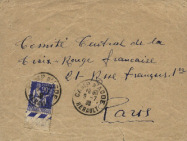 Comité Central de la
Croix-Rouge française
21 Rue François 1er
Paris
HERAULT